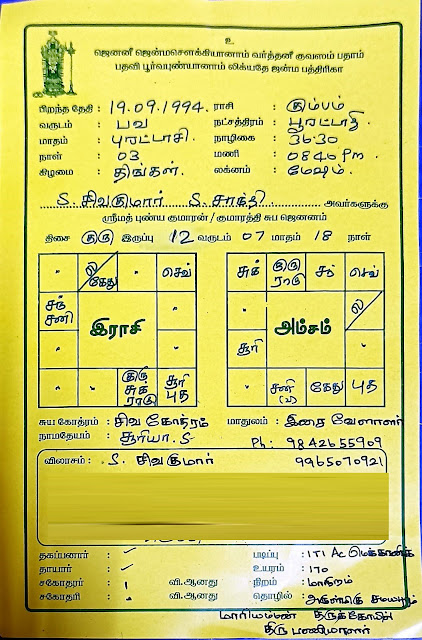 உ
ஜெனனீ ஜென்மசௌக்கியானாம் வர்த்தனீ குலஸம் பதாம்
பதவி பூர்வபுண்யானாம் லிக்யதே ஜன்ம பத்திரிகா
பிறந்த தேதி : 19.09.1994. ராசி : கும்பம்
வருடம் : பவ நட்சத்திரம் : பூரட்டாதி
மாதம் : புரட்டாசி நாழிகை : 36.30
நாள் : 03 மணி : 08.40 Pm.
கிழமை : திங்கள். லக்னம் : மேஷம்.
S. சிவகுமார் S. சாந்தி அவர்களுக்கு
ஸ்ரீமத் புண்ய குமாரன் / குமாரத்தி சுப ஜெனனம்
திசை குரு இருப்பு 12 வருடம் 07 மாதம் 18 நாள்
" ல கேது " செவ்
சந் சனி "
இராசி
" "
" " குரு சுக் ராகு சூரி புத
சுக் குரு ராகு சந் செவ்
" ல
அம்சம்
சூரி "
" சனி (வ) கேது புத
சுய கோத்ரம் : சிவ கோத்ரம் மாதுலம் : இறை வேளாளர்
நாமதேயம் : சூரியா. S
Ph: 9842655909
விலாசம் : S. சிவகுமார் 9965070921
தகப்பனார் : ✓ படிப்பு : ITI Ac மெக்கானிக்
தாயார் : ✓ உயரம் : 170
சகோதரர் : 1 வி.ஆனது நிறம் : மாநிறம்
சகோதரி : " வி.ஆனது தொழில் : அருள்மிகு சமயபுரம்
மாரியம்மன் திருக்கோயில்